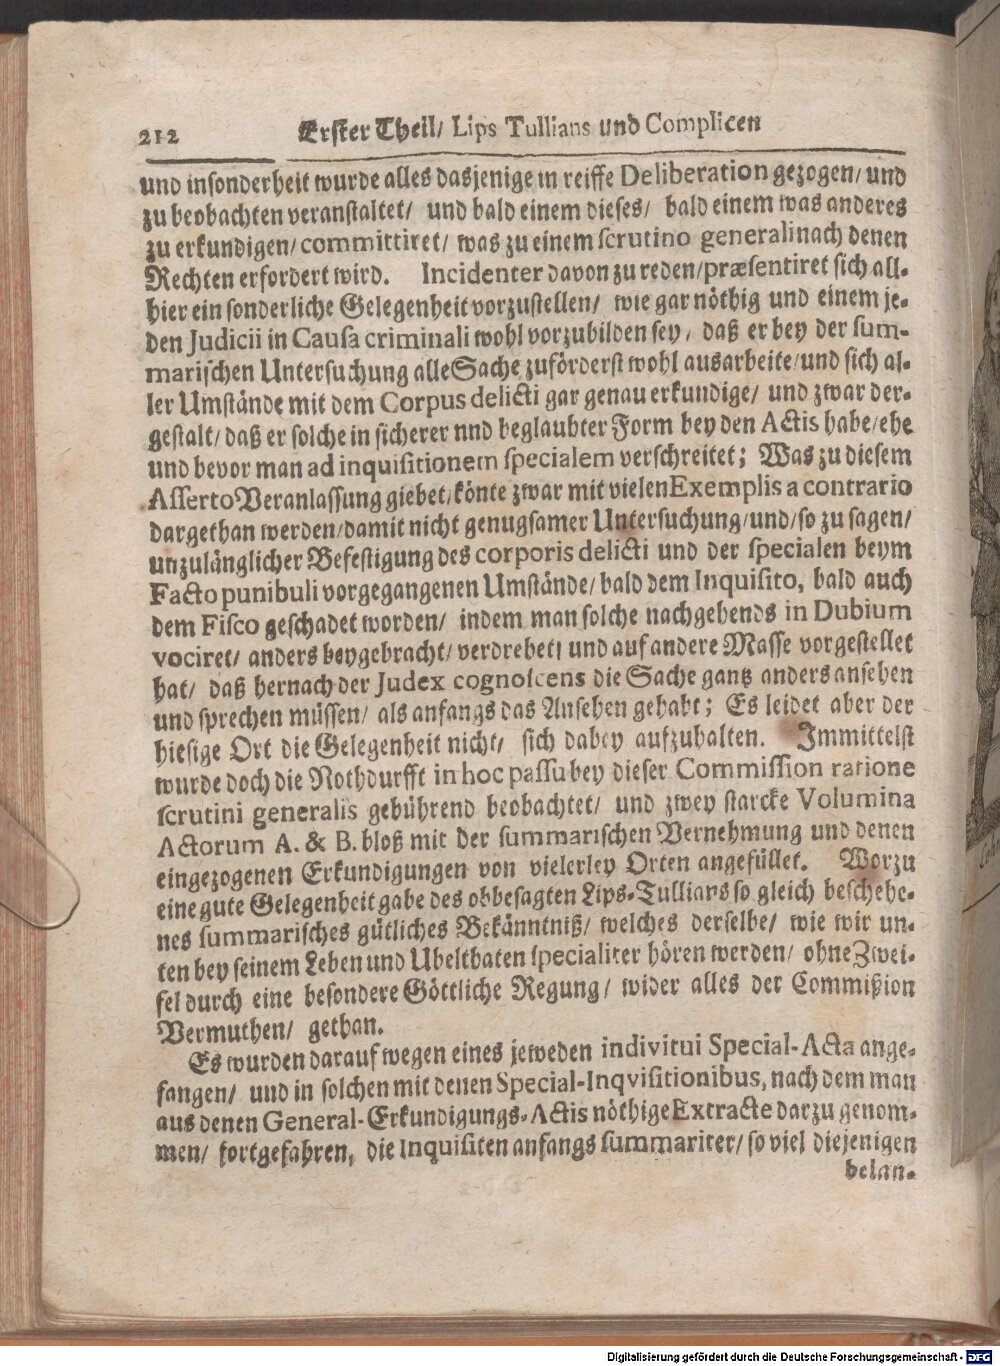 212 Erster Theil/ Lips Tullians und Complicen
und insonderheit wurde alles dasjenige in reiffe Deliberation gezogen/ und
zu beobachten veranstaltet/ und bald einem dieses/ bald einem was anderes
zu erkundigen/ committiret/ was zu einem scrutino generali nach denen
Rechten erfordert wird. Incidenter davon zu reden/ præsentiret sich all-
hier ein sonderliche Gelegenheit vorzustellen/ wie gar nöthig und einem je-
den Judicii in Causa criminali wohl vorzubilden sey/ daß er bey der sum-
marischen Untersuchung alle Sache zuförderst wohl ausarbeite/ und sich al-
ler Umstände mit dem Corpus delicti gar genau erkundige/ und zwar der-
gestalt/ daß er solche in sicherer nnd beglaubter Form bey den Actis habe/ ehe
und bevor man ad inquisitionem specialem verschreitet; Was zu diesem
Asserto Veranlassung giebet/ könte zwar mit vielen Exemplis a contrario
dargethan werden/ damit nicht genugsamer Untersuchung/ und/ so zu sagen/
unzulänglicher Befestigung des corporis delicti und der specialen beym
Facto punibuli vorgegangenen Umstände/ bald dem Inquisito, bald auch
dem Fisco geschadet worden/ indem man solche nachgehends in Dubium
vociret/ anders beygebracht/ verdrehet/ und auf andere Masse vorgestellet
hat/ daß hernach der Judex cognoscens die Sache gantz anders ansehen
und sprechen müssen/ als anfangs das Ansehen gehabt; Es leidet aber der
hiesige Ort die Gelegenheit nicht/ sich dabey aufzuhalten. Immittelst
wurde doch die Nothdurfft in hoc passu bey dieser Commission ratione
scrutini generalis gebührend beobachtet/ und zwey starcke Volumina
Actorum A. & B. bloß mit der summarischen Vernehmung und denen
eingezogenen Erkundigungen von vielerley Orten angefüllet. Worzu
eine gute Gelegenheit gabe des obbesagten Lips-Tullians so gleich beschehe-
nes summarisches gütliches Bekänntniß/ welches derselbe/ wie wir un-
ten bey seinem Leben und Ubelthaten specialiter hören werden/ ohne Zwei-
fel durch eine besondere Göttliche Regung/ wider alles der Commißion
Vermuthen/ gethan.
Es wurden darauf wegen eines jeweden indivitui Special-Acta ange-
fangen/ und in solchen mit denen Special-Inqvisitionibus, nach dem man
aus denen General-Erkundigungs-Actis nöthige Extracte darzu genom-
men/ fortgefahren, die Inquisiten anfangs summariter/ so viel diejenigen
belan-
Digitalisierung gefördert durch die Deutsche Forschungsgemeinschaft - DFG